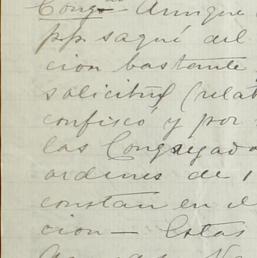 Congº Aunque
pp. saqué del
ción bastante
solicitud (relat
confiscó y por
las Congregado
ordenes de 1
constan en el
cion — Estas